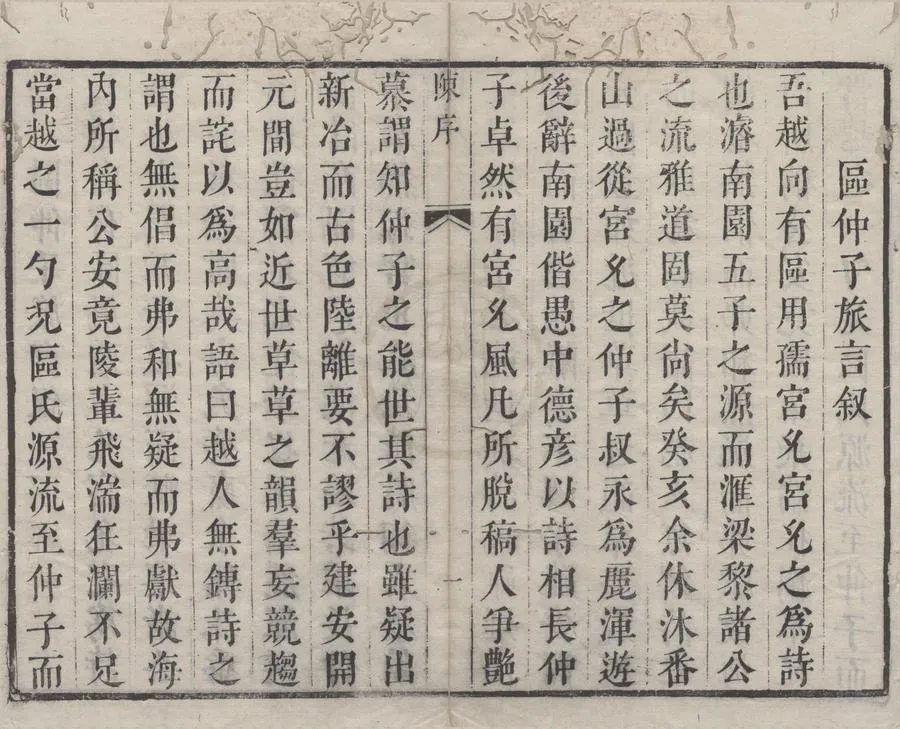 區仲子旅言叙
吾越向有區用孺宮允宮允之爲詩
也濬南園五子之源而滙梁黎諸公
之流雅道固莫尚矣癸亥余休沐番
山過從宮允之仲子叔永爲麗渾遊
後辭南園偕愚中德彦以詩相長仲
子卓然有宮允風凡所脫稿人爭艶
陳序
一
慕謂知仲子之能世其詩也雖疑出
新冶而古色陸離要不謬乎建安開
元間豈如近世草草之韻羣妄競趨
而詫以爲高哉語曰越人無鎛詩之
謂也無倡而弗和無疑而弗獻故海
內所稱公安竟陵輩飛湍狂瀾不足
當越之一勺況區氏源流至仲子而